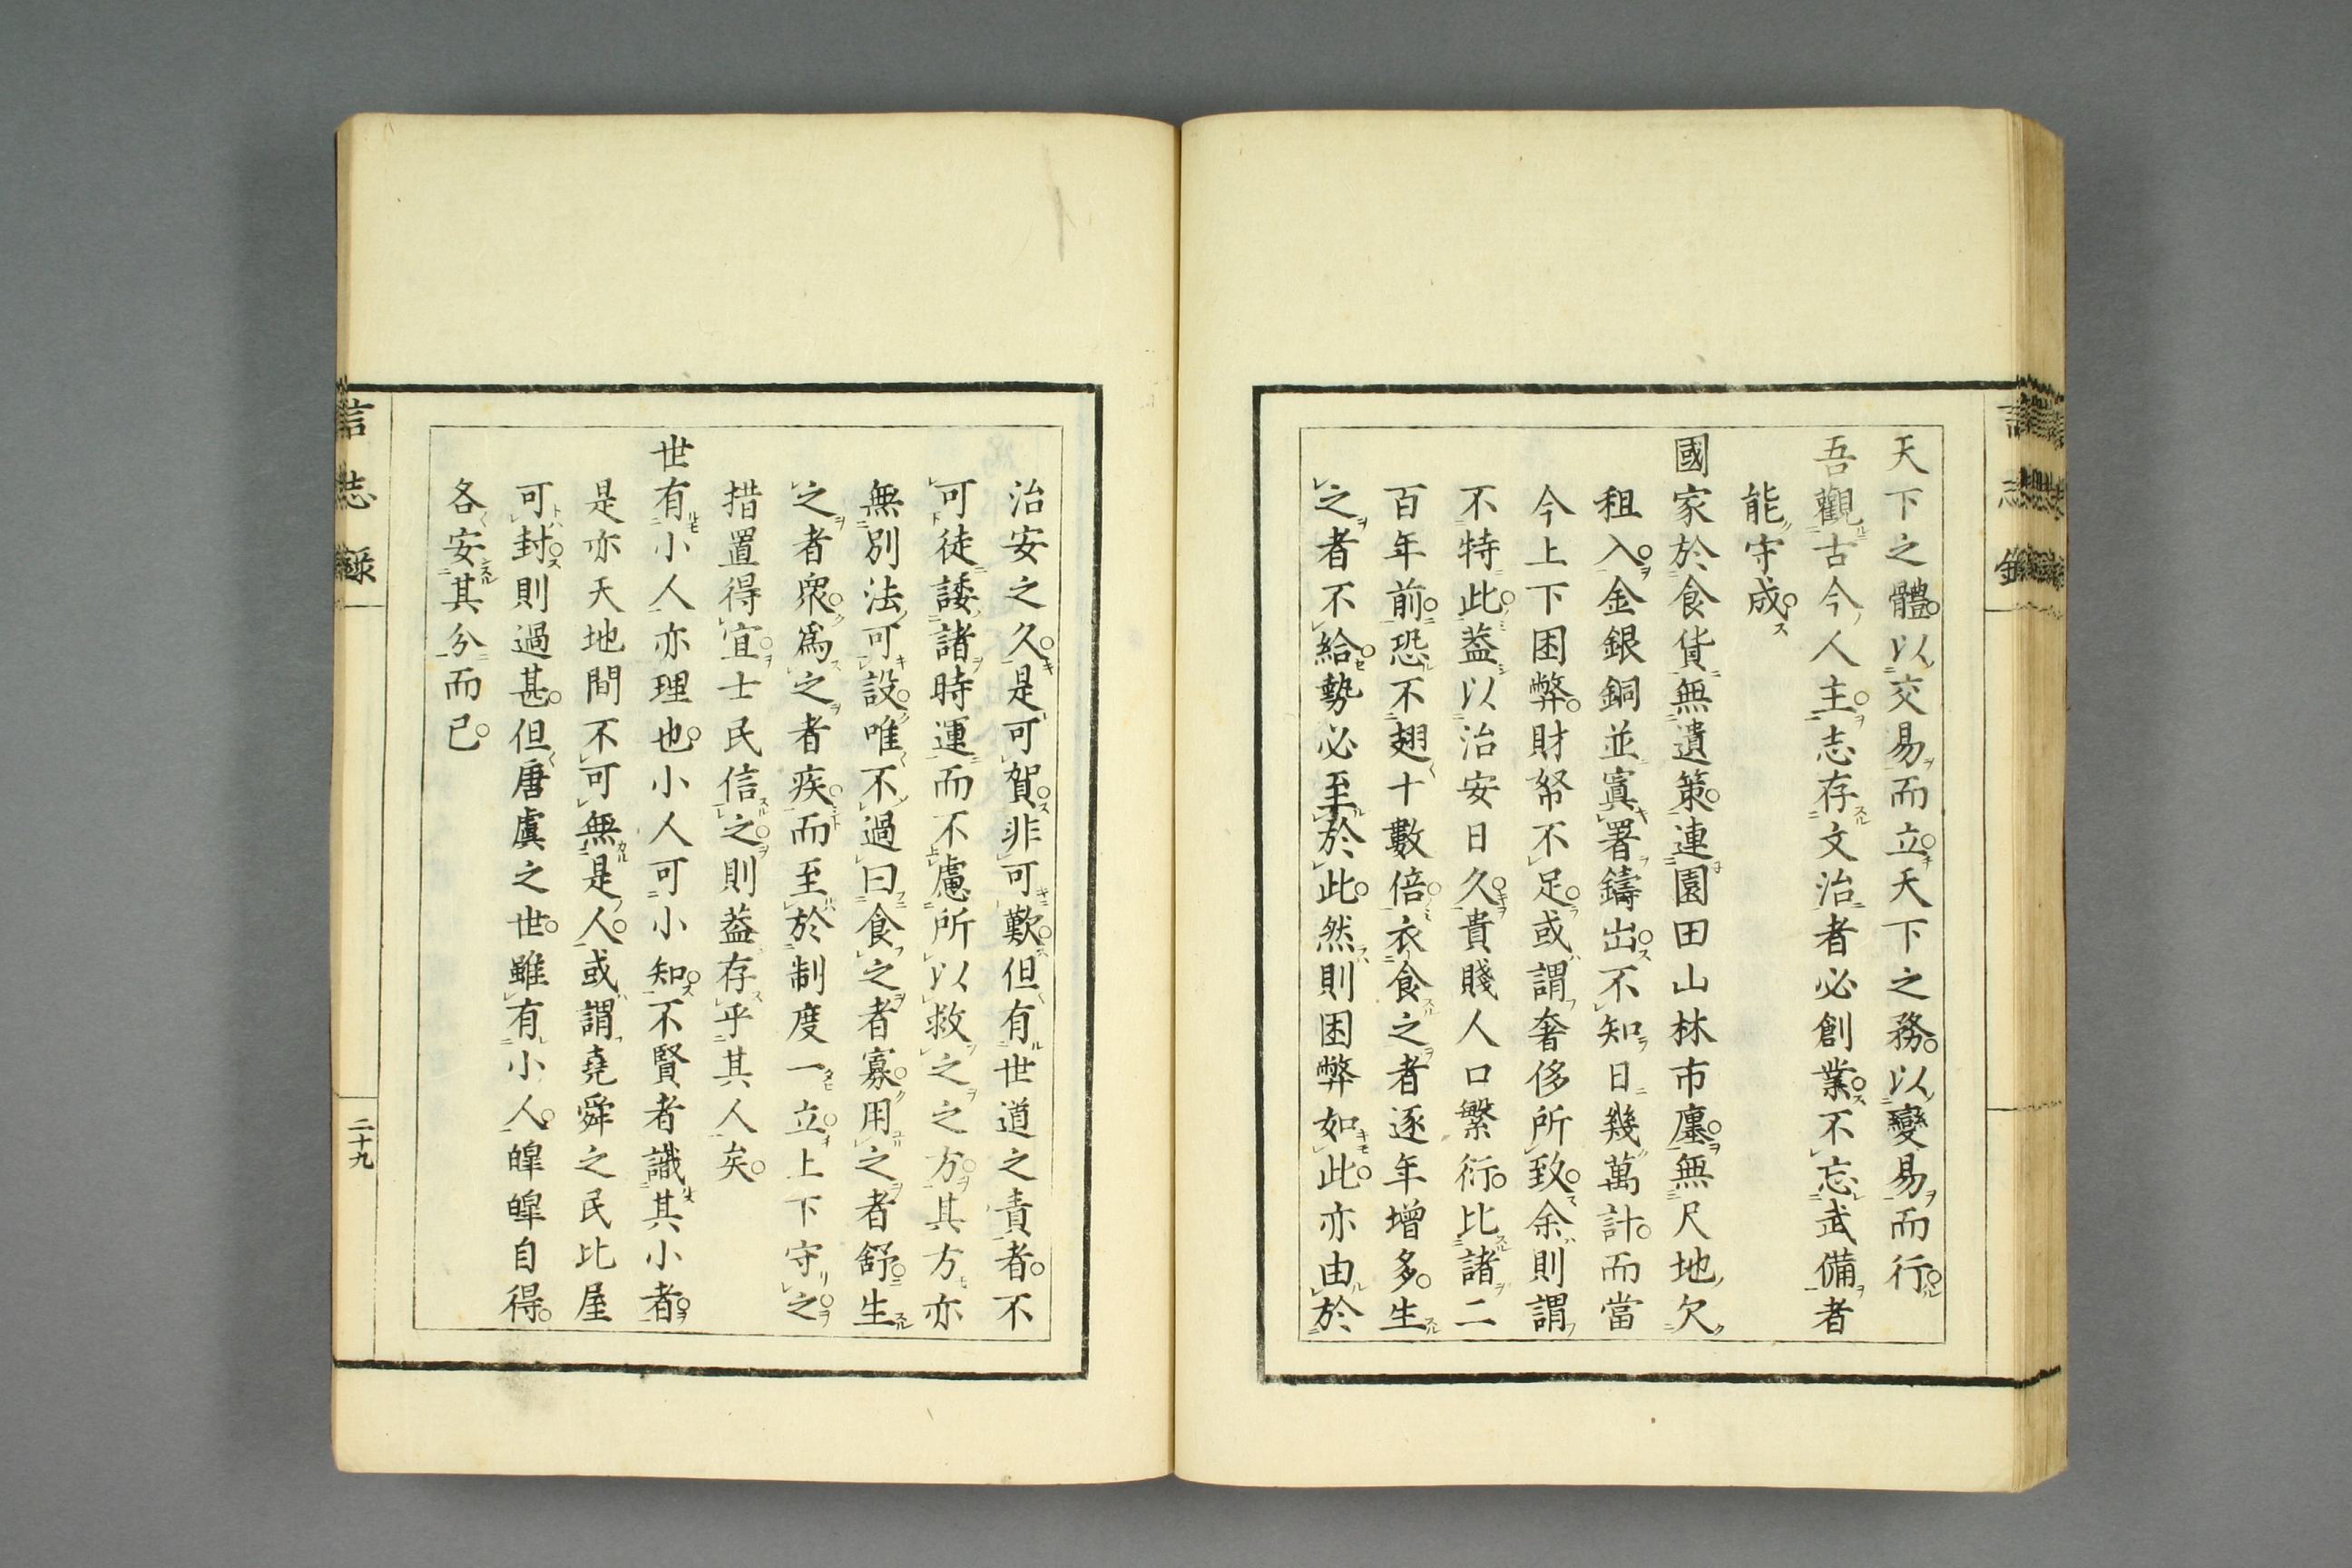 天下之體以交易而立天下之務以變易而行
吾觀古今人主志存文治者必創業不忘武備者
能守成
國家於食貨無遺策連園田山林市廛無尺地欠
租入金銀銅並寘署鑄出不知日幾萬計而當
今上下困弊財帑不足或謂奢侈所致余則謂
不特此蓋以治安日久貴賤人口繁衍比諸二
百年前恐不翅十數倍衣食之者逐年增多生
之者不給勢必至於此然則困弊如此亦由於
治安之久是可賀非可歎但有世道之責者不
可徒諉諸時運而不慮所以救之之方其方亦
無別法可設唯不過曰食之者寡用之者舒生
之者衆爲之者疾而至於制度一立上下守之
措置得宜士民信之則蓋存乎其人矣
世有小人亦理也小人可小知不賢者識其小者
是亦天地間不可無是人或謂堯舜之民比屋
可封則過甚但唐虞之世雖有小人皥皥自得
各安其分而已
志錄
二十九